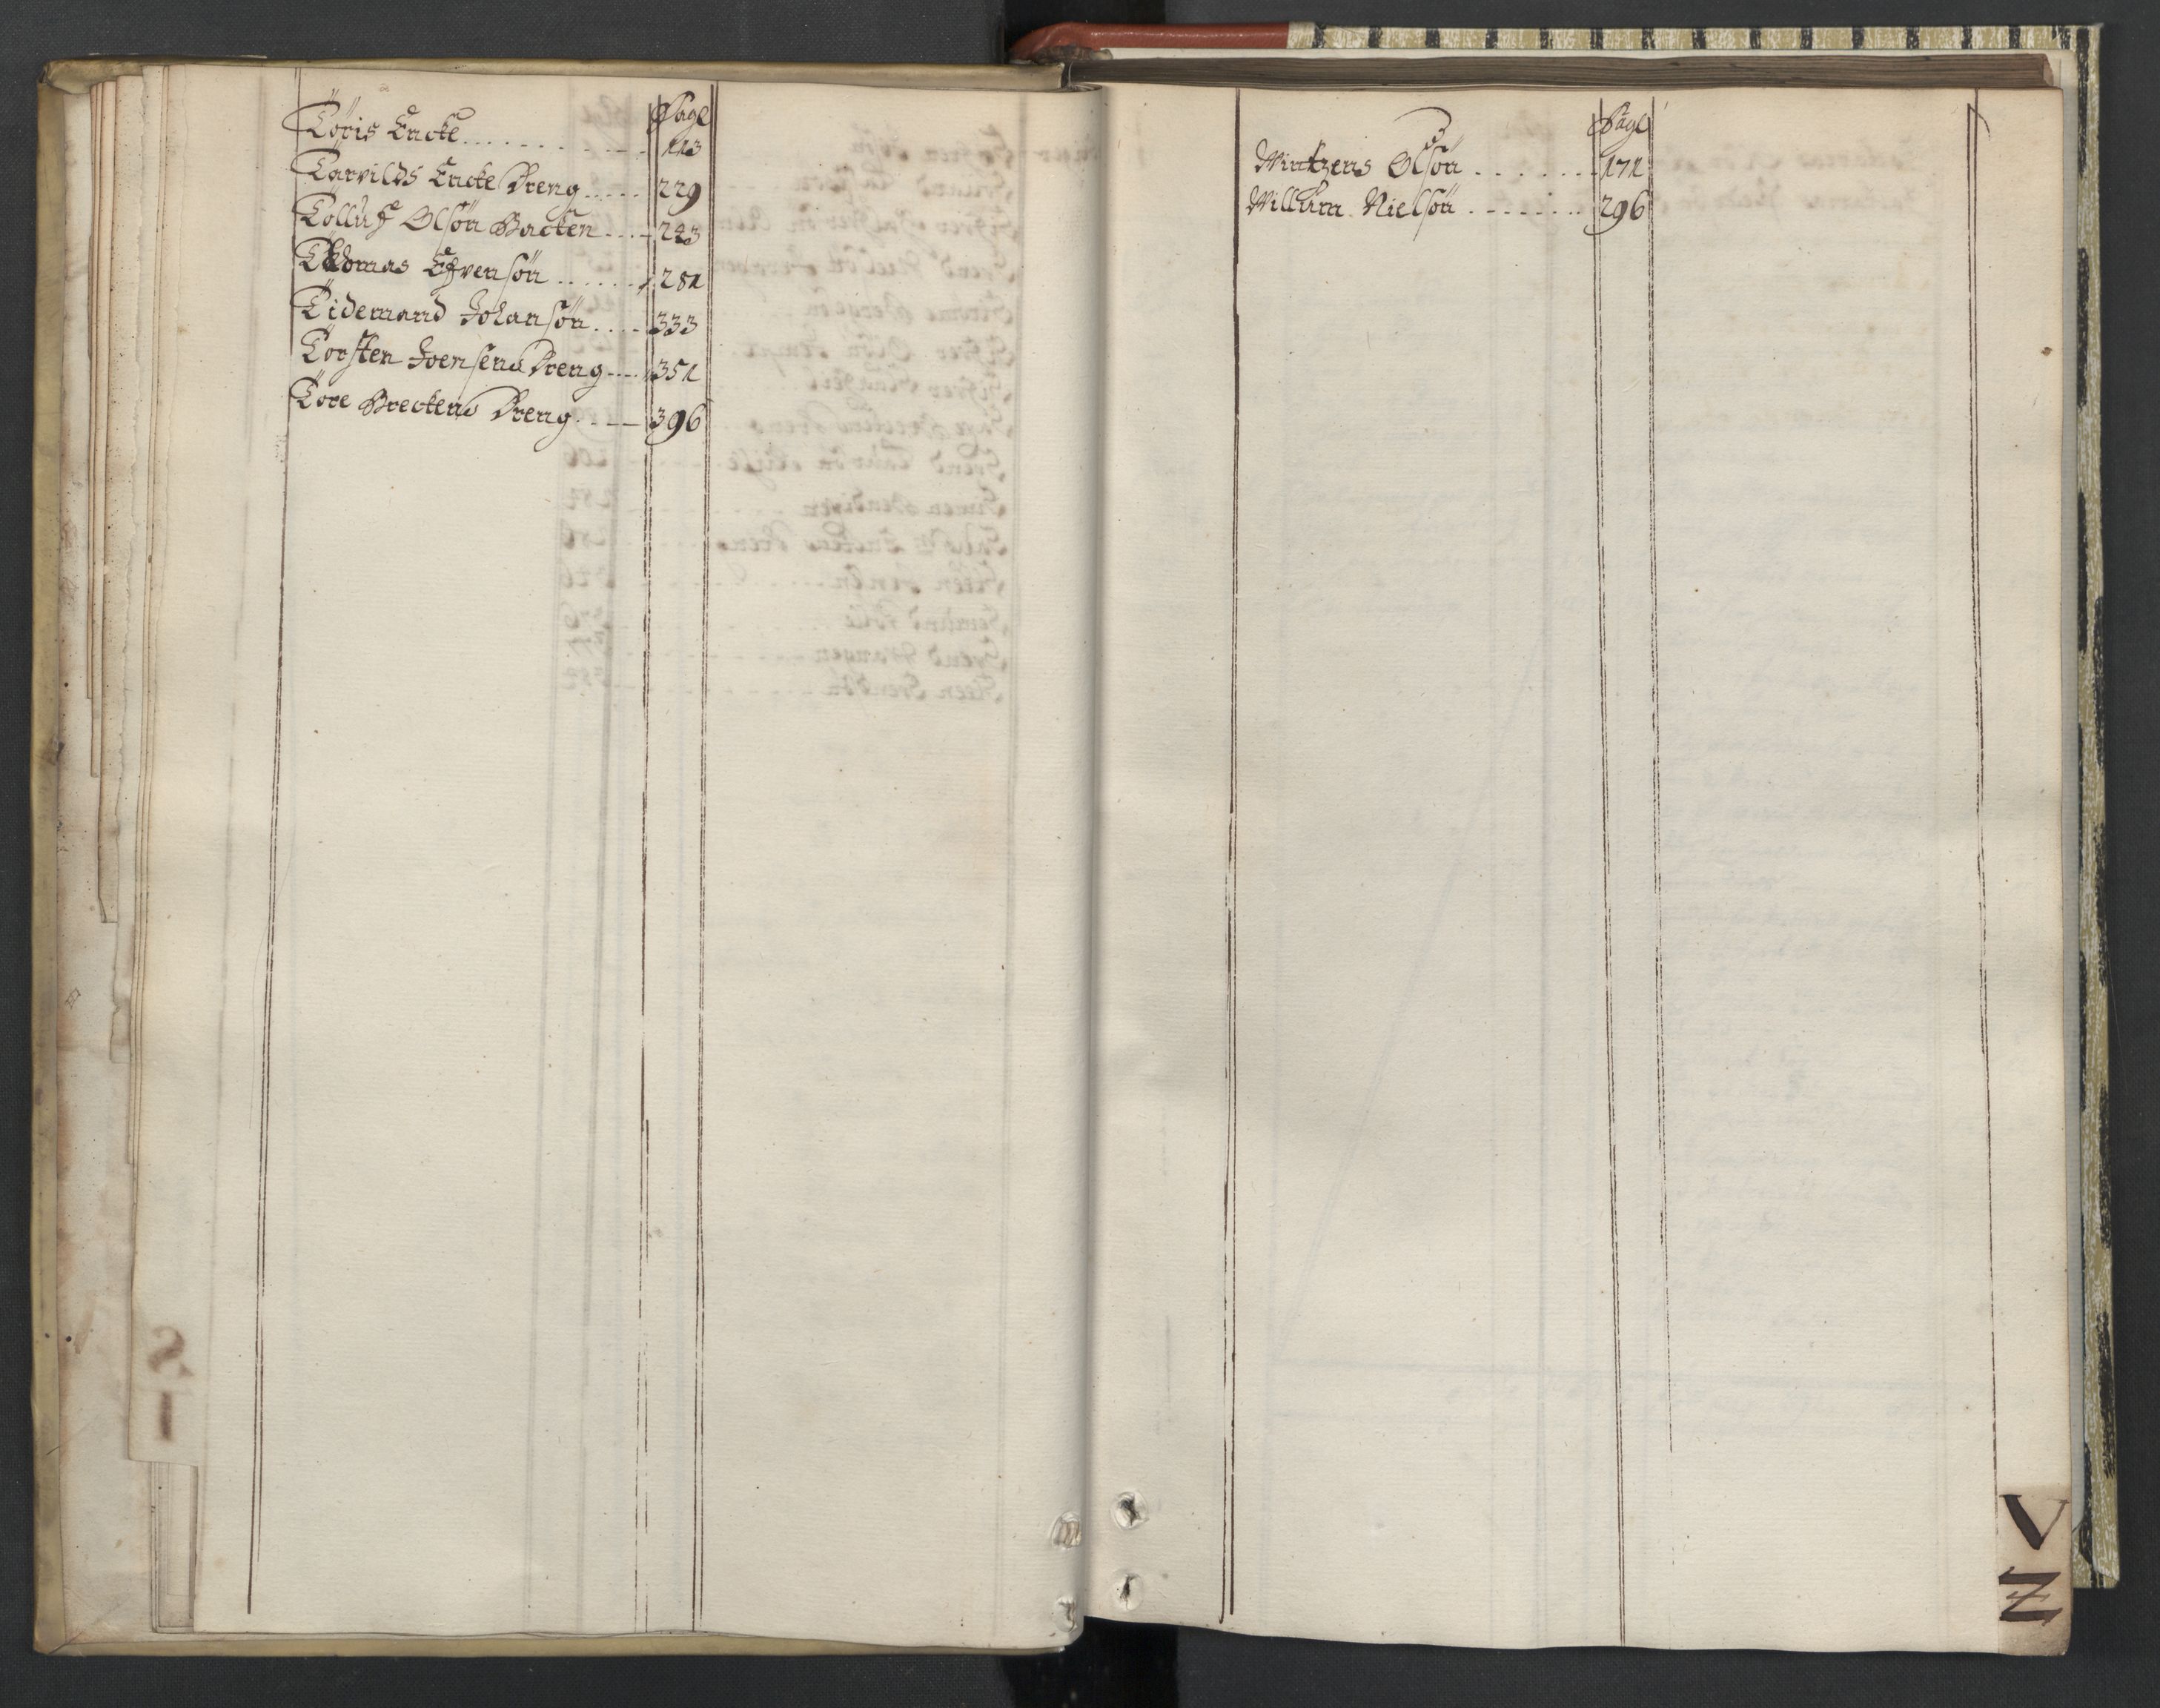 Page
Töris Encke 113
Tarvilds Encke Dreng 229
Tolluf Olsön Backen 243
Thomas Efvensön 281
Tidemand Johansön 333
Torsten Joensens Dreng 351
Tore Breckens Dreng 396
Page
Wintzens Olsön 171
Willum Nielsön 296
V
Z